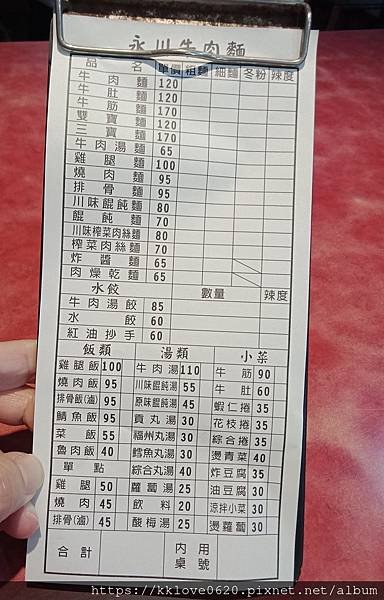 永川牛肉麵
品名 單價 粗麵 細麵 冬粉 辣度
牛肉麵 120
牛肚麵 120
牛筋麵 170
雙寶麵 170
三寶麵 170
牛肉湯麵 65
雞腿麵 100
燒肉麵 95
排骨麵 95
川味餛飩麵 80
餛飩麵 70
川味榨菜肉絲麵 80
榨菜肉絲麵 70
炸醬麵 65
肉燥乾麵 65
水餃 數量 辣度
牛肉湯餃 85
水餃 60
紅油抄手 60
飯類 湯類 小菜
雞腿飯 100 牛肉湯 110 牛筋 90
燒肉飯 95 川味餛飩湯 55 牛肚 60
排骨飯(滷) 95 原味餛飩湯 45 蝦仁捲 35
鯖魚飯 95 貢丸湯 30 花枝捲 35
菜飯 55 福州丸湯 30 綜合捲 35
魯肉飯 40 鱈魚丸湯 30 燙青菜 40
單點 綜合丸湯 40 炸豆腐 35
雞腿 50 蘿蔔湯 25 油豆腐 30
燒肉 45 飲料 20 涼拌小菜 30
排骨(滷) 45 酸梅湯 25 燙蘿蔔 30
合計 內用桌號
https://kklove0620.pixnet.net/album